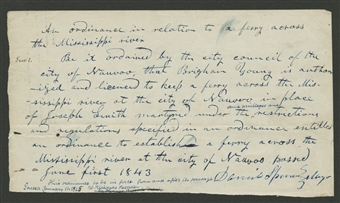 An ordinance in relation to a ferry across
the Mississippi river
Sec 1. Be it ordained by the city council of the
city of Nauvoo, that Brigham Young is author
ized and licenced to keep a ferry across the Mis-
sissippi river at the city of Nauvoo in place
of Joseph Smith martyred under the restrictions
and regulations specified in an ordinance entitled
an ordinance to establish a ferry across the
Mississippi river at the city of Nauvoo passed
June first 1843
This ordinance to be in force from and after its passage Daniel Spencer Mayor
Passed January